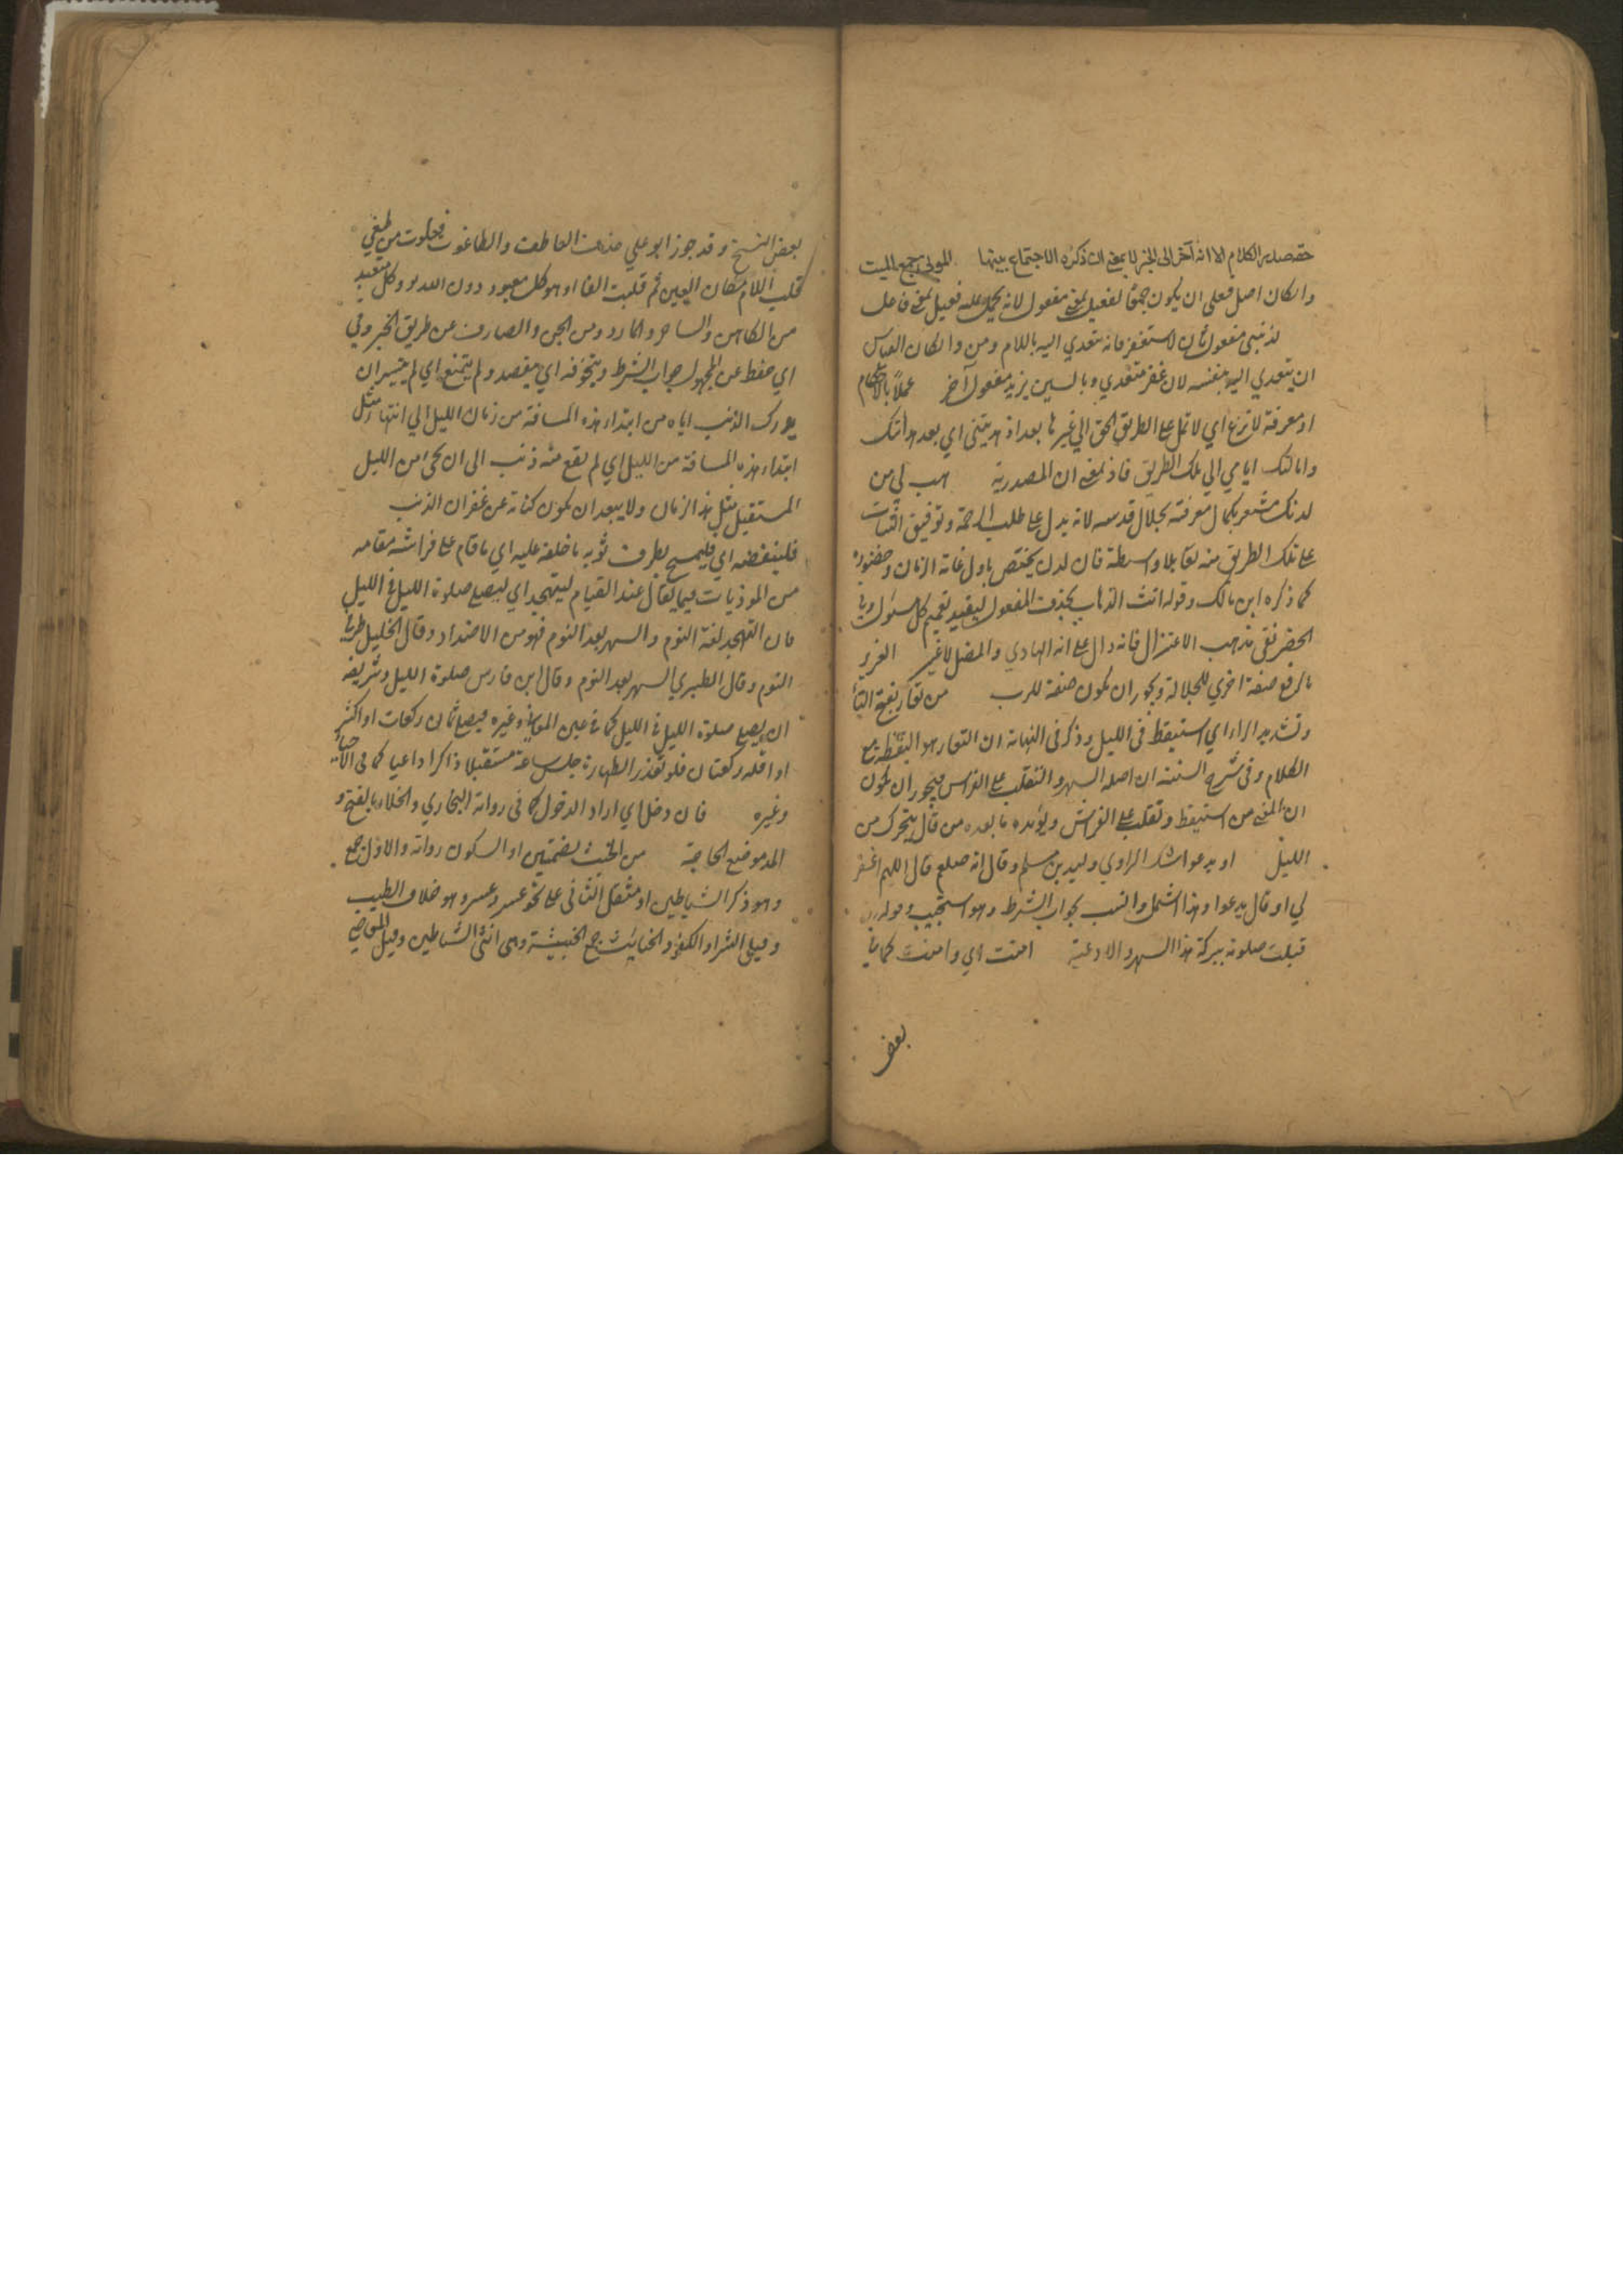 حقه صدر الكلام الا انه آخر الى الخبر لا بمعنى ان ذكره الاجتماع بينهما الموتى جمع الميت
وان كان اصل فعلى ان يكون جمعا لفعيل بمعنى مفعول لانه يحمل عليه فعيل بمعنى فاعل
لذنبي مفعول ثان لاستغفر فانه يتعدي اليه باللام ومن وان كان القياس
ان يتعدي اليه بنفسه لان غفر متعدي وبالسين يزيد مفعول آخر عملا بالاحكام
او معرفة لا تزغ اي لا تمل على الطريق الحق الي غيرها بعد اذ هديتني اي بعد هدايتك
وامالتك ايامي الي تلك الطريق فاذ بمعنى ان المصدرية هب لي من
لدنك مشعر بكمال معرفته بجلال قدسه لانه يدل على طلب الرحمة وتوفيق الثبات
على تلك الطريق منه تعا بلا واسطة فان لدن يختص باول غاية الزمان وحضوره
كما ذكره ابن مالك وقوله انت الذهاب بحذف المفعول ليفيد تعميم كل مسئول وفي
الحصر نفى مذهب الاعتزال فانه دال على انه الهادي والمضل لا غير العزيز
بالرفع صفة اخري للجلالة ويجوز ان يكون صفة للرب من تعار بفتح التاء
وتشديد الراء اي استيقظ فى الليل وذكر فى النهاية ان التعار هو اليقظة مع
الكلام وفى شرح السنة ان اصله السهر والتقلب على الفراش فيجوز ان يكون
ان المعنى من استيقظ وتقلب على الفراش ويؤيده ما بعده من قال يتحرك من
الليل او يدعو اشك الراوي وليد بن مسلم وقال انه صلعم قال اللهم اغفر
لي او قال يدعوا وهذا اشمل وانسب بجواب الشرط وهو استجيب وقوله
قبلت صلوته ببركة هذا السهر والادعية امنت اي وامنت كما في
بعض
بعض النسخ وقد جوز ابو علي حذف العاطف والطاغوت فعلوت من طغي
قلب اللام مكان العين ثم قلبت الفا او هو كل معبود دون الله وكل متعبد
من الكاهن والساحر والمارد ومن الجن والصارف عن طريق الخير وفي
اي حفظ عن المجهول جواب الشرط ويتخوفه اي يقصد ولم يتمنع اي لم يتيسر ان
يدرك الذنب اياه من ابتداء هذه المسافة من زمان الليل الي انتهاء مثل
ابتداء هذه المسافة من الليل اي لم يقع منه ذنب الى ان يجىء من الليل
المستقبل مثل هذا الزمان ولا يبعد ان يكون كناية عن غفران الذنب
فلينفضه اي فليمسح بطرف ثوبه ما خلفه عليه اي ما قام على فراشه مقامه
من الموذيات فيما يقال عند القيام ليتهجد اي ليصلي صلوة الليل فى الليل
فان التهجد لغة النوم والسهر بعد النوم فهو من الاضداد وقال الخليل طرد
النوم وقال الطبري السهر بعد النوم وقال ابن فارس صلوة الليل وشريعة
ان يصلي صلوة الليل فى الليل كما فى عين المعاني وغيره فيصلي ثمان ركعات او اكثر
او اقله ركعتان فلو تعذر الطهارة جلس ساعة مستقبلا ذاكرا داعيا كما فى الاحياء
وغيره فان دخل اي اراد الدخول كما فى رواية البخاري والخلاء بالفتح و
المد موضع الحاجة من الخبث بضمتين او السكون رواية والاول جمع
وهو ذكر الشياطين او مثقل الثانى على نحو عسر وعسر وهو خلاف الطيب
وقيل الشر او الكفر والخبائث جمع الخبيثة وهى انثى الشياطين وقيل المعاصي